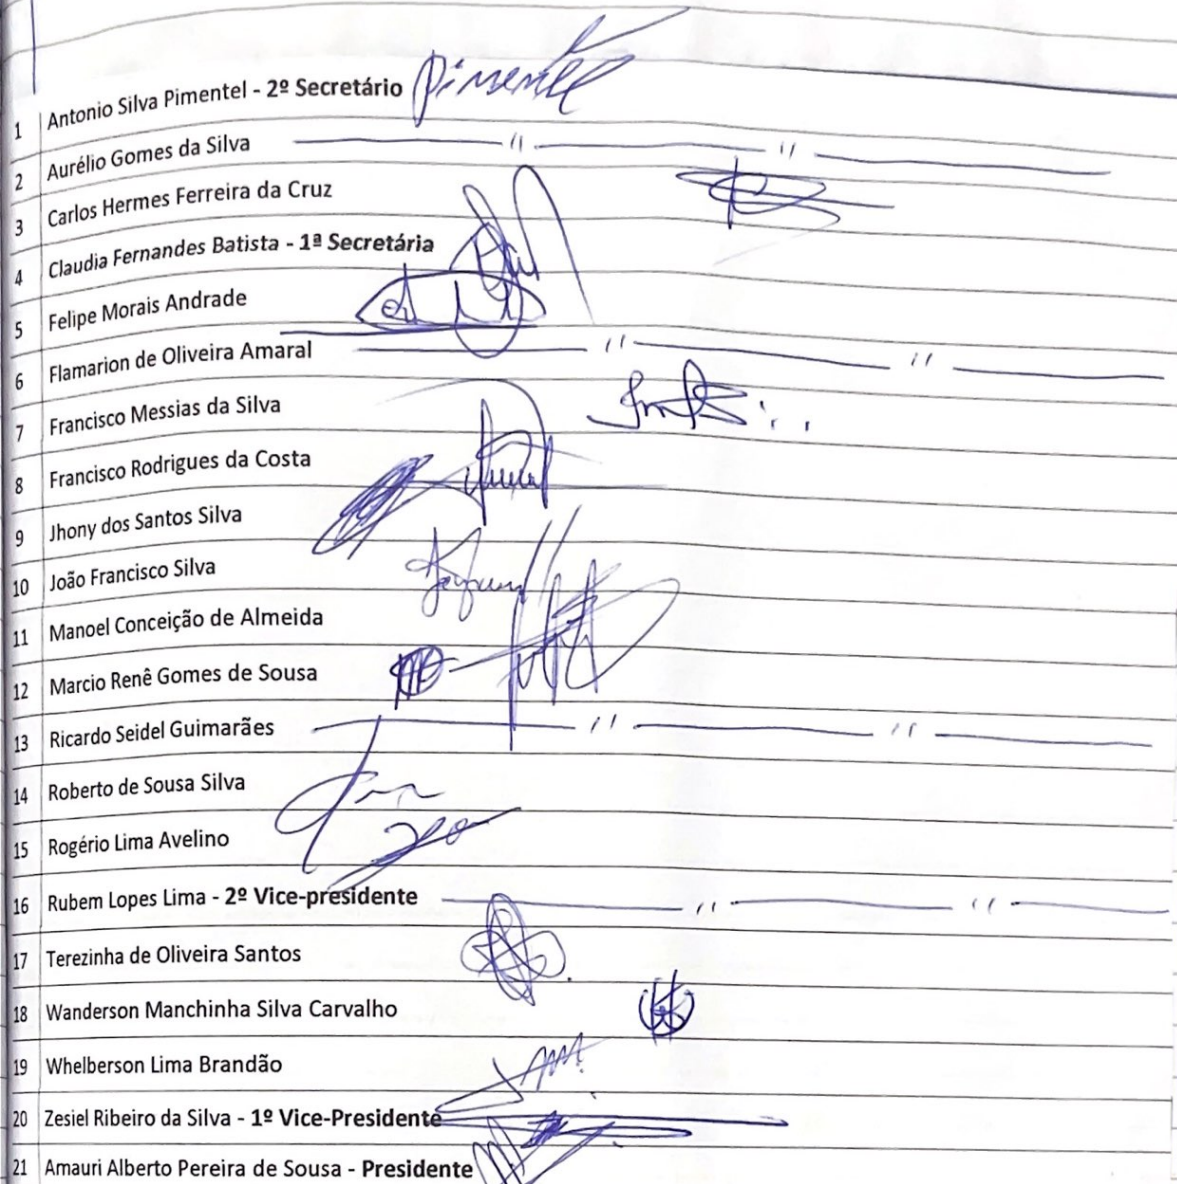 1 Antonio Silva Pimentel - 2º Secretário Pimentel
2 Aurélio Gomes da Silva
3 Carlos Hermes Ferreira da Cruz
4 Claudia Fernandes Batista - 1ª Secretária
5 Felipe Morais Andrade
6 Flamarion de Oliveira Amaral
7 Francisco Messias da Silva
8 Francisco Rodrigues da Costa
9 Jhony dos Santos Silva
10 João Francisco Silva
11 Manoel Conceição de Almeida
12 Marcio Renê Gomes de Sousa
13 Ricardo Seidel Guimarães
14 Roberto de Sousa Silva
15 Rogério Lima Avelino
16 Rubem Lopes Lima - 2º Vice-presidente
17 Terezinha de Oliveira Santos
18 Wanderson Manchinha Silva Carvalho
19 Whelberson Lima Brandão
20 Zesiel Ribeiro da Silva - 1º Vice-Presidente
21 Amauri Alberto Pereira de Sousa - Presidente